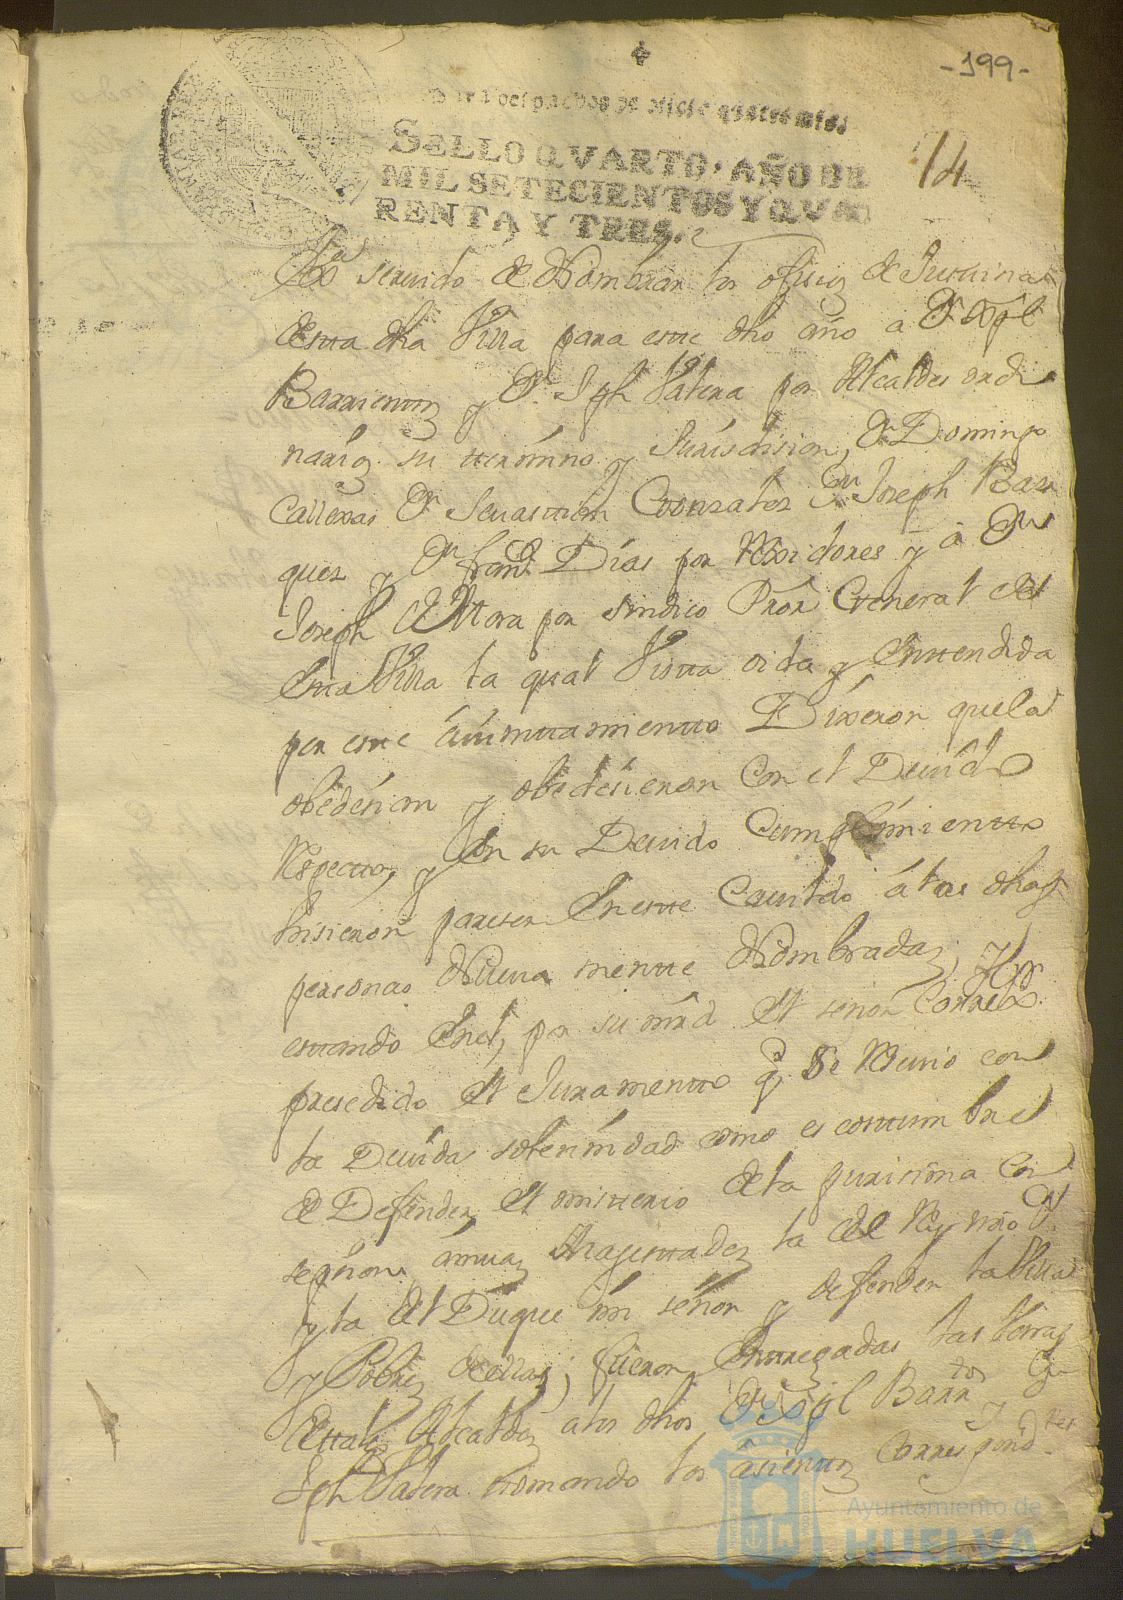 -199-
para despachos de oficio quatro mrs
SELLO QVARTO, AÑO DE
MIL SETECIENTOS Y QVA
RENTA Y TRES.
14
seruido de Nombrar los ofisios de Justisia
desta dha Villa para este dho año a Dn
Barrientos y Dn Jph Valera por Alcaldes ordi
narios su termino y Jurisdision, Dn Domingo
Callexas Dn Seuastian Gonzales Dn Joseph Bas
ques y Dn Franco Dias por Rexidores y a Dn
Joseph de Mora por sindico Pror General de
esta Villa la qual Vista oida y Entendida
por este aiuntamiento Dixeron que la
obedesian y obedesieron Con el Deuido
Respecto, y En su Deuido Cumplimiento
hisieron pareser En este Cauildo á las dhas
personas Nueua mente Nombradas, y
estando En el, por su mrd El señor Correxor
presedido El Juramento q Se Resiuio con
la Deuida solemnidad como es costumbre
de Defender El misterio de la purisima Con
sepsion, ámuas Magestades la del Rey nro Sr
y la del Duque mi señor y defender la Villa
y Pobres de ellas; fueron Entregadas las Varas
de tales Alcaldes a los dhos Dn Barrtos y
Jph Valera tomando los ásientos Correspond tes
Ayuntamiento de
HUELVA